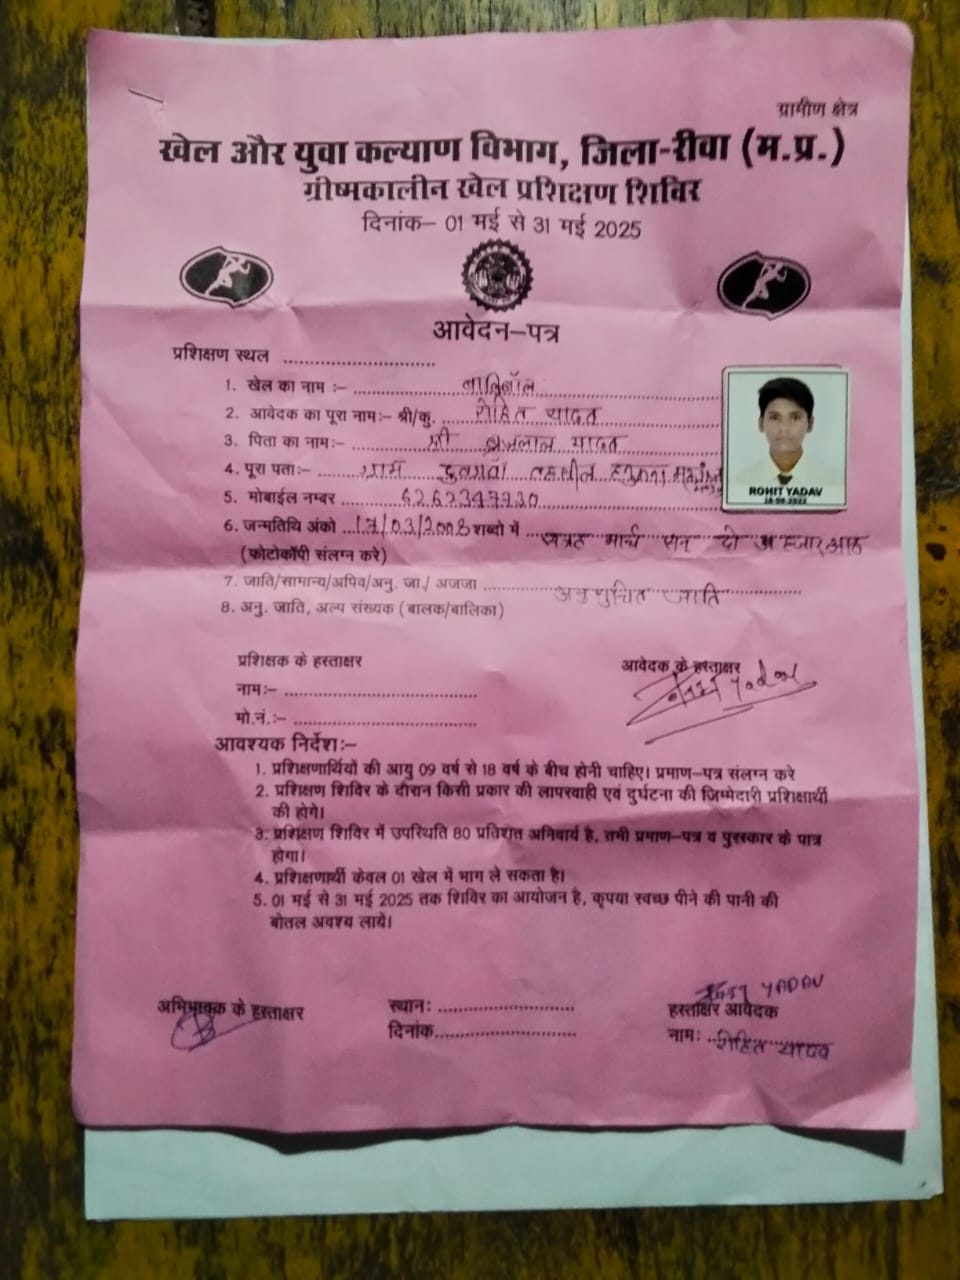 ग्रामीण क्षेत्र
खेल और युवा कल्याण विभाग, जिला-रीवा (म.प्र.)
ग्रीष्मकालीन खेल प्रशिक्षण शिविर
दिनांक– 01 मई से 31 मई 2025
आवेदन–पत्र
प्रशिक्षण स्थल ..............................
1. खेल का नाम :– वालिबॉल
2. आवेदक का पूरा नाम:– श्री/कु. रोहित यादव
3. पिता का नाम:– श्री बृजलाल यादव
4. पूरा पता:– ग्राम तहसील
5. मोबाईल नम्बर 6262347730
6. जन्मतिथि अंको 17/03/2008 शब्दो में सत्रह मार्च सन दो हजार आठ
(फोटोकॉपी संलग्न करे)
7. जाति/सामान्य/अपिव/अनु. जा./ अजजा अनुसुचित जाति
8. अनु. जाति, अल्प संख्यक (बालक/बालिका)
ROHIT YADAV
प्रशिक्षक के हस्ताक्षर
आवेदक के हस्ताक्षर
Yadav
नाम:– ..............................
मो.नं.:– ..............................
आवश्यक निर्देश:–
1. प्रशिक्षणार्थियों की आयु 09 वर्ष से 18 वर्ष के बीच होनी चाहिए। प्रमाण–पत्र संलग्न करे
2. प्रशिक्षण शिविर के दौरान किसी प्रकार की लापरवाही एवं दुर्घटना की जिम्मेदारी प्रशिक्षार्थी
की होगे।
3. प्रशिक्षण शिविर में उपस्थिति 80 प्रतिशत अनिवार्य है, तभी प्रमाण–पत्र व पुरस्कार के पात्र
होगा।
4. प्रशिक्षणार्थी केवल 01 खेल में भाग ले सकता है।
5. 01 मई से 31 मई 2025 तक शिविर का आयोजन है, कृपया स्वच्छ पीने की पानी की
बोतल अवश्य लायें।
YADAV
अभिभावक के हस्ताक्षर
स्थान: ..............................
हस्ताक्षर आवेदक
दिनांक..............................
नाम: रोहित यादव